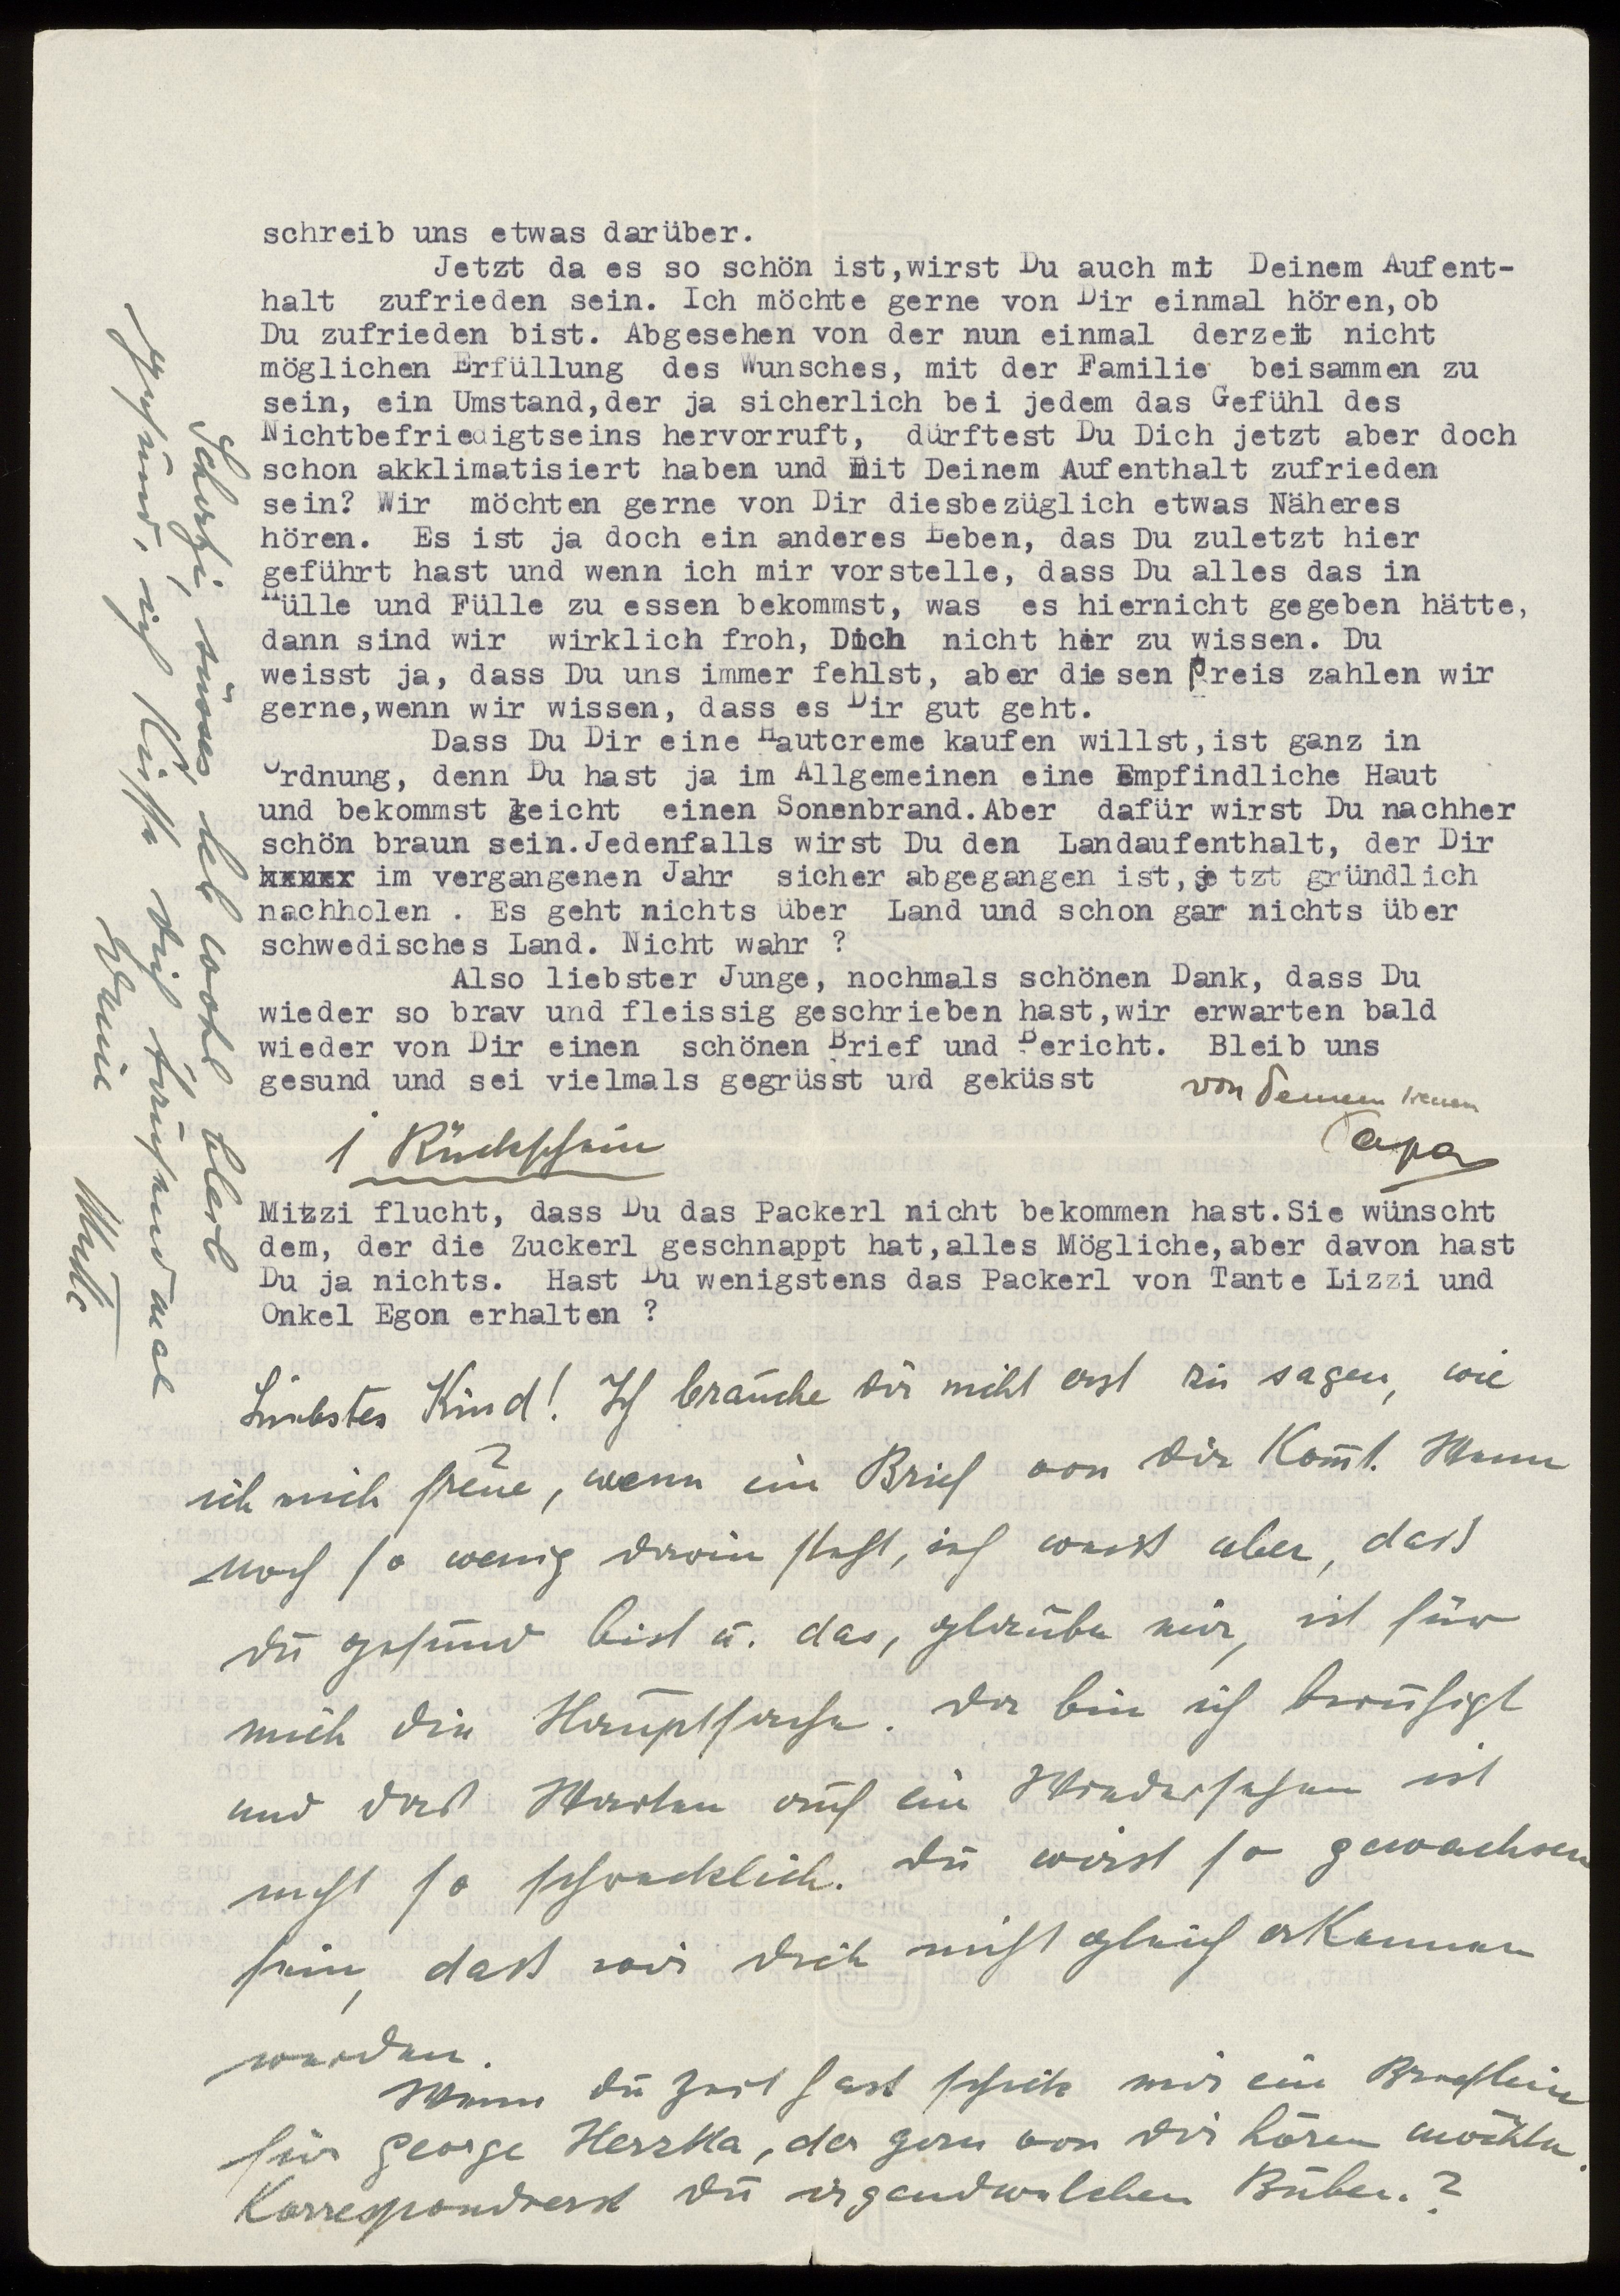 schreib uns etwas darüber.
Jetzt da es so schön ist,wirst Du auch mt Deinem Aufent-
halt zufrieden sein. Ich möchte gerne von Dir einmal hören,ob
Du zufrieden bist. Abgesehen von der nun einmal derzeit nicht
möglichen Erfüllung des Wunsches, mit der Familie beisammen zu
sein, ein Umstand,der ja sicherlich bei jedem das Gefühl des
Nichtbefriedigtseins hervorruft, dürftest Du Dich jetzt aber doch
schon akklimatisiert haben und mit Deinem Aufenthalt zufrieden
sein? Wir möchten gerne von Dir diesbezüglich etwas Näheres
hören. Es ist ja doch ein anderes Leben, das Du zuletzt hier
geführt hast und wenn ich mir vorstelle, dass Du alles das in
Hülle und Fülle zu essen bekommst, was es hiernicht gegeben hätte,
dann sind wir wirklich froh, Dich nicht hier zu wissen. Du
weisst ja, dass Du uns immer fehlst, aber diesen Preis zahlen wir
gerne,wenn wir wissen, dass es Dir gut geht.
Dass Du Dir eine Hautcreme kaufen willst,ist ganz in
Ordnung, denn Du hast ja im Allgemeinen eine Empfindliche Haut
und bekommst leicht einen Sonenbrand.Aber dafür wirst Du nachher
schön braun sein.Jedenfalls wirst Du den Landaufenthalt, der Dir
im vergangenen Jahr sicher abgegangen ist,jetzt gründlich
nachholen . Es geht nichts über Land und schon gar nichts über
schwedisches Land. Nicht wahr ?
Also liebster Junge, nochmals schönen Dank, dass Du
wieder so brav und fleissig geschrieben hast,wir erwarten bald
wieder von Dir einen schönen Brief und Bericht. Bleib uns
gesund und sei vielmals gegrüsst und geküsst
von Deinem treuen
Papa
1 Rückschein
Mitzi flucht, dass Du das Packerl nicht bekommen hast.Sie wünscht
dem, der die Zuckerl geschnappt hat,alles Mögliche,aber davon hast
Du ja nichts. Hast Du wenigstens das Packerl von Tante Lizzi und
Onkel Egon erhalten ?
Liebstes Kind! Ich brauche dir nicht erst zu sagen, wie
ich mich freue, wenn ein Brief von dir kom̅t. Wenn
noch so wenig darin steht, ich weiss aber, dass
du gesund bist u. das, glaube mir, ist für
mich die Hauptsache. Da bin ich beruhigt
und das Warten auf ein Wiedersehen ist
nicht so schrecklich. Du wirst so gewachsen
sein, dass wir dich nicht gleich erkennen
werden.
Wenn du Zeit hast schick mir ein Brieflein
für George Herzka, der gern von dir hören möchte.
Korrespondierst du irgendwelchen Buben.?
Schurzi, süsses leb wohl bleib
gesund, ich küsse dich tausend mal
Deine
Mutti